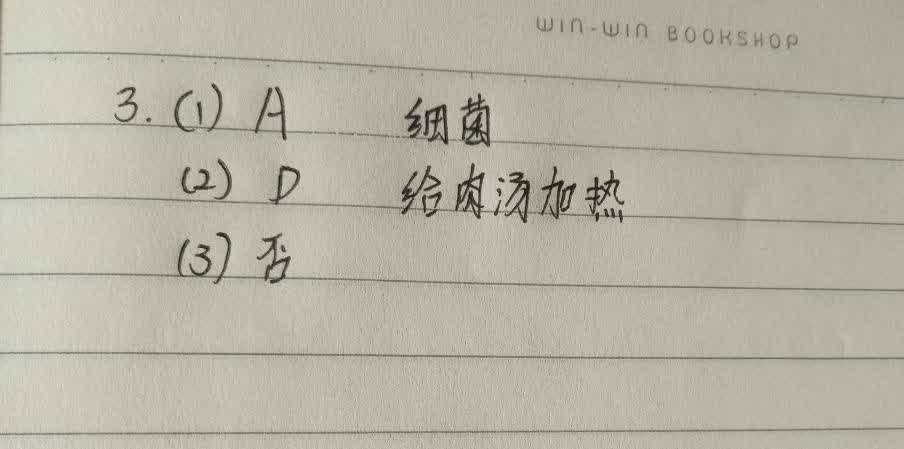 WIN-WIN BOOKSHOP
3. (1) A 细菌
(2) D 给肉汤加热
(3) 否